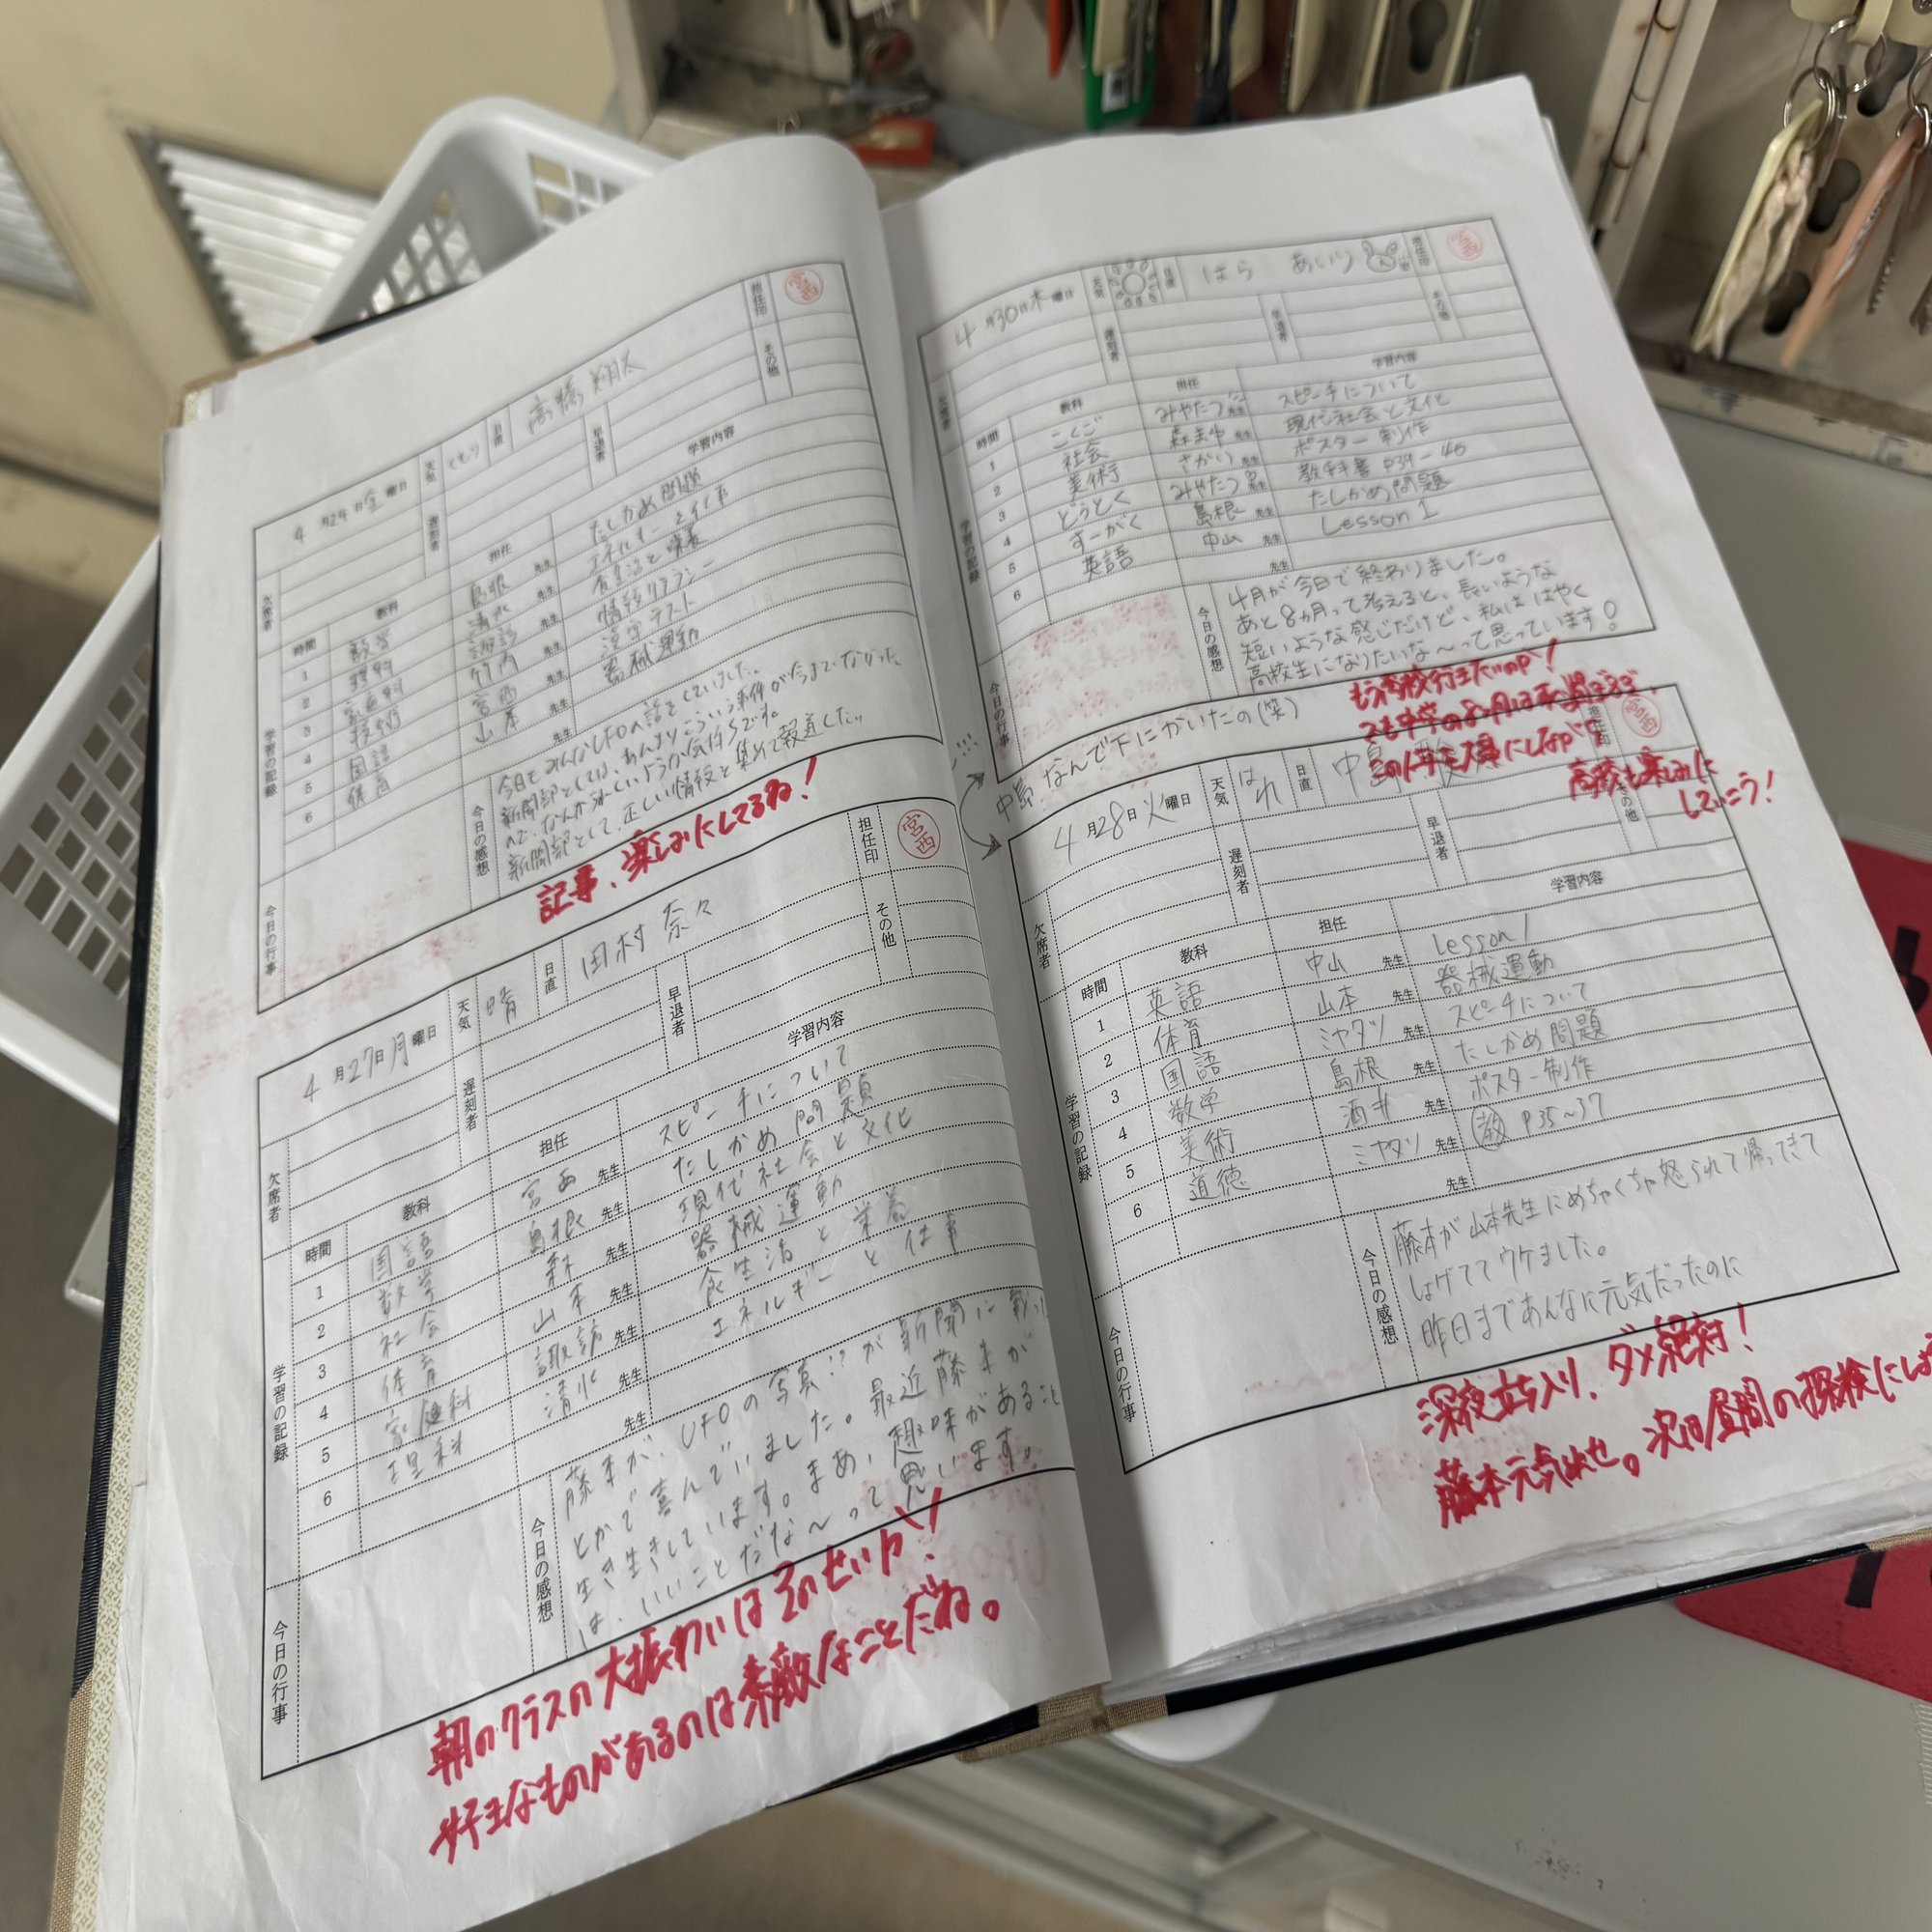 4月24日金曜日
天気
くもり
日直
高橋翔太
担任印
宮西
欠席者
遅刻者
早退者
その他
学習の記録
時間
教科
担任
学習内容
1 数学 島根 先生 たしかめ問題
2 理科 清水 先生 エネルギーと仕事
3 家庭科 諏訪 先生 食生活と栄養
4 技術 竹内 先生 情報リテラシー
5 国語 宮西 先生 漢字テスト
6 体育 山本 先生 器械運動
先生
今日の行事
今日の感想
今日でみんなUFOの話をしていました。
新聞部としては、あんまりこういう事件が今までなかった
ので、なんか うれしいような気持ちです。
新聞部として、正しい情報を集めて報道したい
記事、楽しみにしてるね!
4月27日月曜日
天気
晴
日直
田村奈々
担任印
宮西
欠席者
遅刻者
早退者
その他
学習の記録
時間
教科
担任
学習内容
1 国語 宮西 先生 スピーチについて
2 数学 島根 先生 たしかめ問題
3 社会 森 先生 現代社会と文化
4 体育 山本 先生 器械運動
5 家庭科 諏訪 先生 食生活と栄養
6 理科 清水 先生 エネルギーと仕事
先生
今日の行事
今日の感想
藤本が、UFOの写真!?が新聞に載った
とかで喜んでいました。最近藤本が
生き生きしています。まあ、趣味があること
は、いいことだな〜って思います。
朝のクラスの大振わいはそのせいか!
好きなものがあるのは素敵なことだね。
4月30日木曜日
天気
日直
はら あいり
担任印
宮西
欠席者
遅刻者
早退者
その他
学習の記録
時間
教科
担任
学習内容
1 こくご みやたつ 先生 スピーチについて
2 社会 森まゆ 先生 現代社会と文化
3 美術 さかい 先生 ポスター制作
4 どうとく みやたつ 先生 教科書P39-40
5 すーがく 島根 先生 たしかめ問題
6 英語 中山 先生 Lesson 1
先生
今日の行事
今日の感想
4月が今日で終わりました。
あと8ヵ月って考えると、長いような
短いような感じだけど、私ははやく
高校生になりたいな〜って思っています!
もう高校行きたいのか!
この1年も大事にしながら
高校も楽しみに
していこう!
中島なんで下にかいたの(笑)
4月28日火曜日
天気
はれ
日直
中島
担任印
宮西
欠席者
遅刻者
早退者
その他
学習の記録
時間
教科
担任
学習内容
1 英語 中山 先生 Lesson 1
2 体育 山本 先生 器械運動
3 国語 ミヤタツ 先生 スピーチについて
4 数学 島根 先生 たしかめ問題
5 美術 酒井 先生 ポスター制作
6 道徳 ミヤタツ 先生 教 P35~37
先生
今日の行事
今日の感想
藤本が山本先生にめちゃくちゃ怒られて帰ってきて
しょげてて ウケました。
昨日まであんなに元気だったのに
深夜立ち入り、ダメ絶対!
藤本元気出せ。次回昼間の探検にしよ